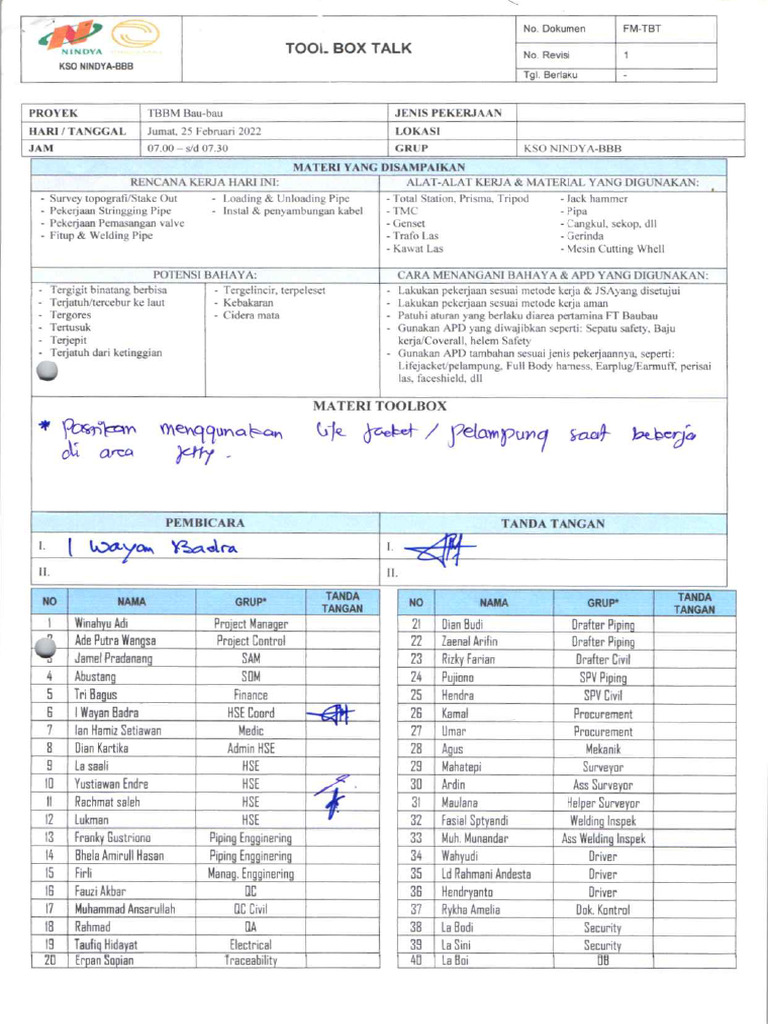 NINDYA
KSO NINDYA-BBB
TOOL BOX TALK
No. Dokumen FM-TBT
No. Revisi 1
Tgl. Berlaku -
PROYEK TBBM Bau-bau JENIS PEKERJAAN
HARI / TANGGAL Jumat, 25 Februari 2022 LOKASI
JAM 07.00 – s/d 07.30 GRUP KSO NINDYA-BBB
MATERI YANG DISAMPAIKAN
RENCANA KERJA HARI INI:
- Survey topografi/Stake Out
- Pekerjaan Stringging Pipe
- Pekerjaan Pemasangan valve
- Fitup & Welding Pipe
- Loading & Unloading Pipe
- Instal & penyambungan kabel
ALAT-ALAT KERJA & MATERIAL YANG DIGUNAKAN:
- Total Station, Prisma, Tripod
- TMC
- Genset
- Trafo Las
- Kawat Las
- Jack hammer
- Pipa
- Cangkul, sekop, dll
- Gerinda
- Mesin Cutting Whell
POTENSI BAHAYA:
- Tergigit binatang berbisa
- Terjatuh/tercebur ke laut
- Tergores
- Tertusuk
- Terjepit
- Terjatuh dari ketinggian
- Tergelincir, terpeleset
- Kebakaran
- Cidera mata
CARA MENANGANI BAHAYA & APD YANG DIGUNAKAN:
- Lakukan pekerjaan sesuai metode kerja & JSAyang disetujui
- Lakukan pekerjaan sesuai metode kerja aman
- Patuhi aturan yang berlaku diarea pertamina FT Baubau
- Gunakan APD yang diwajibkan seperti: Sepatu safety, Baju
kerja/Coverall, helem Safety
- Gunakan APD tambahan sesuai jenis pekerjaannya, seperti:
Lifejacket/pelampung, Full Body harness, Earplug/Earmuff, perisai
las, faceshield, dll
MATERI TOOLBOX
* Pastikan menggunakan life Jacket / pelampung saat bekerja
di area jetty.
PEMBICARA TANDA TANGAN
I. I Wayan Badra I.
II. II.
NO NAMA GRUP* TANDA TANGAN
1 Winahyu Adi Project Manager
2 Ade Putra Wangsa Project Control
3 Jamel Pradanang SAM
4 Abustang SOM
5 Tri Bagus Finance
6 I Wayan Badra HSE Coord
7 Ian Hamiz Setiawan Medic
8 Dian Kartika Admin HSE
9 La saali HSE
10 Yustiawan Endre HSE
11 Rachmat saleh HSE
12 Lukman HSE
13 Franky Gustriono Piping Engginering
14 Bhela Amirull Hasan Piping Engginering
15 Firli Manag. Engginering
16 Fauzi Akbar QC
17 Muhammad Ansarullah QC Civil
18 Rahmad QA
19 Taufiq Hidayat Electrical
20 Erpan Sopian Traceability
NO NAMA GRUP* TANDA TANGAN
21 Dian Budi Drafter Piping
22 Zaenal Arifin Drafter Piping
23 Rizky Farian Drafter Civil
24 Pujiono SPV Piping
25 Hendra SPV Civil
26 Kamal Procurement
27 Umar Procurement
28 Agus Mekanik
29 Mahatepi Surveyor
30 Ardin Ass Surveyor
31 Maulana Helper Surveyor
32 Fasial Sptyandi Welding Inspek
33 Muh. Munandar Ass Welding Inspek
34 Wahyudi Driver
35 Ld Rahmani Andesta Driver
36 Hendryanto Driver
37 Rykha Amelia Dok. Kontrol
38 La Bodi Security
39 La Sini Security
40 La Boi OB